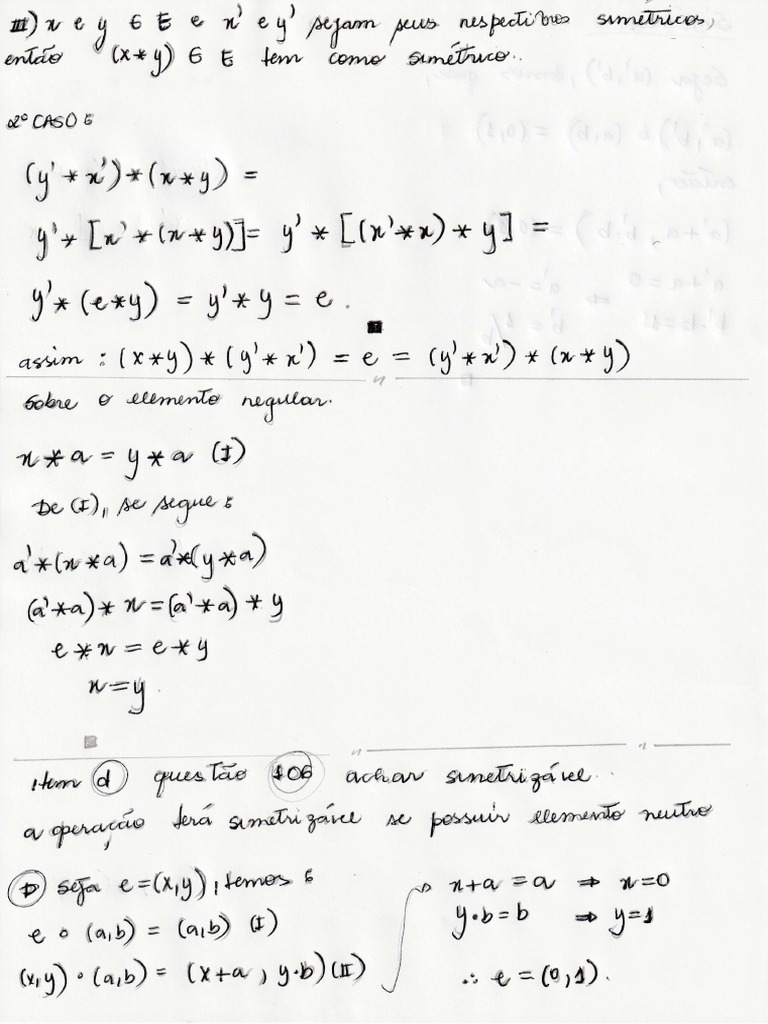 III) x e y ∈ E e x' e y' sejam seus respectivos simétricos,
então (x*y) ∈ E tem como simétrico..
2º CASO:
(y' * x')*(x*y) =
y' * [x' * (x*y)] = y' * [(x'*x) * y] =
y' * (e*y) = y' * y = e.
assim : (x*y) * (y' * x') = e = (y' * x') * (x*y)
Sobre o elemento regular.
x * a = y * a (I)
De (I), se segue:
a' * (x*a) = a' * (y*a)
(a'*a) * x = (a'*a) * y
e * x = e * y
x = y.
Item d questão 106 achar simetrizável.
a operação terá simetrizável se possuir elemento neutro
D seja e = (x,y), temos:
e ∘ (a,b) = (a,b) (I)
(x,y) ∘ (a,b) = (x+a, y·b) (II)
x+a = a ⇒ x=0
y·b = b ⇒ y=1
∴ e = (0,1).